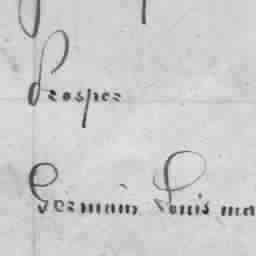 Prosper
Germain Louis ma